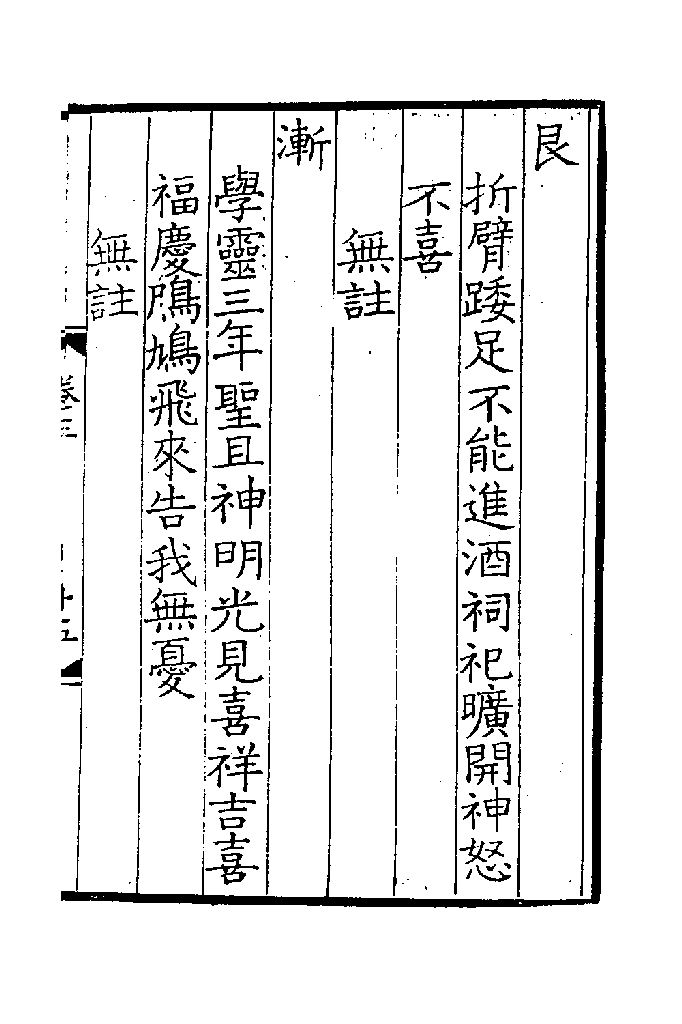 艮
折臂踒足不能進酒祠祀曠開神怒
不喜
無註
漸
學靈三年聖且神明光見善祥吉喜
福慶鴈鳩飛來告我無憂
無註
卷三
廿五